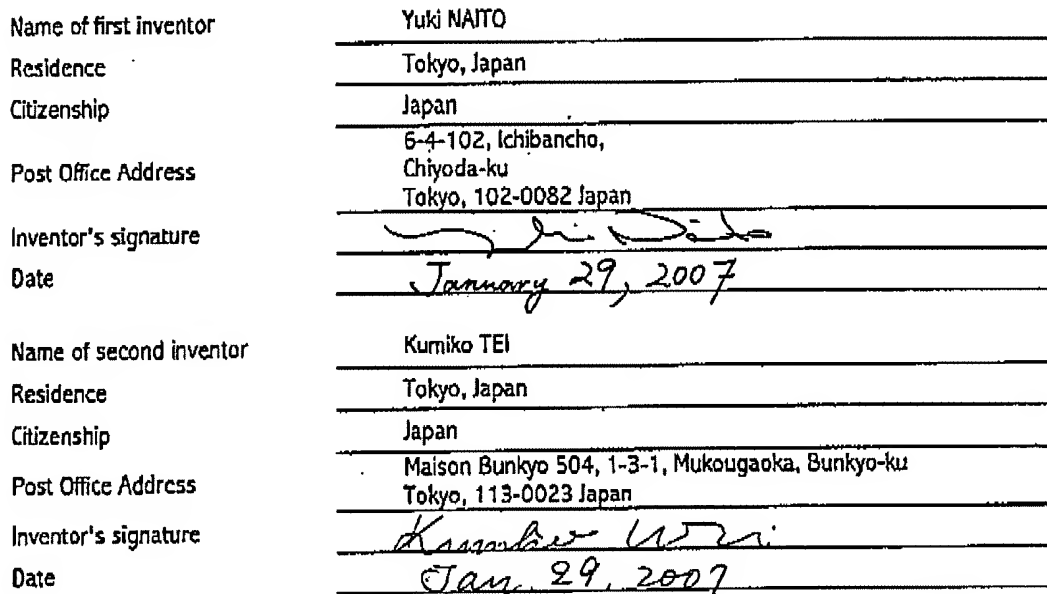 Name of first inventor Yuki NAITO
Residence Tokyo, Japan
Citizenship Japan
Post Office Address 6-4-102, Ichibancho,
Chiyoda-ku
Tokyo, 102-0082 Japan
Inventor's signature
Date January 29, 2007
Name of second inventor Kumiko TEI
Residence Tokyo, Japan
Citizenship Japan
Post Office Address Maison Bunkyo 504, 1-3-1, Mukougaoka, Bunkyo-ku
Tokyo, 113-0023 Japan
Inventor's signature
Date Jan. 29, 2007